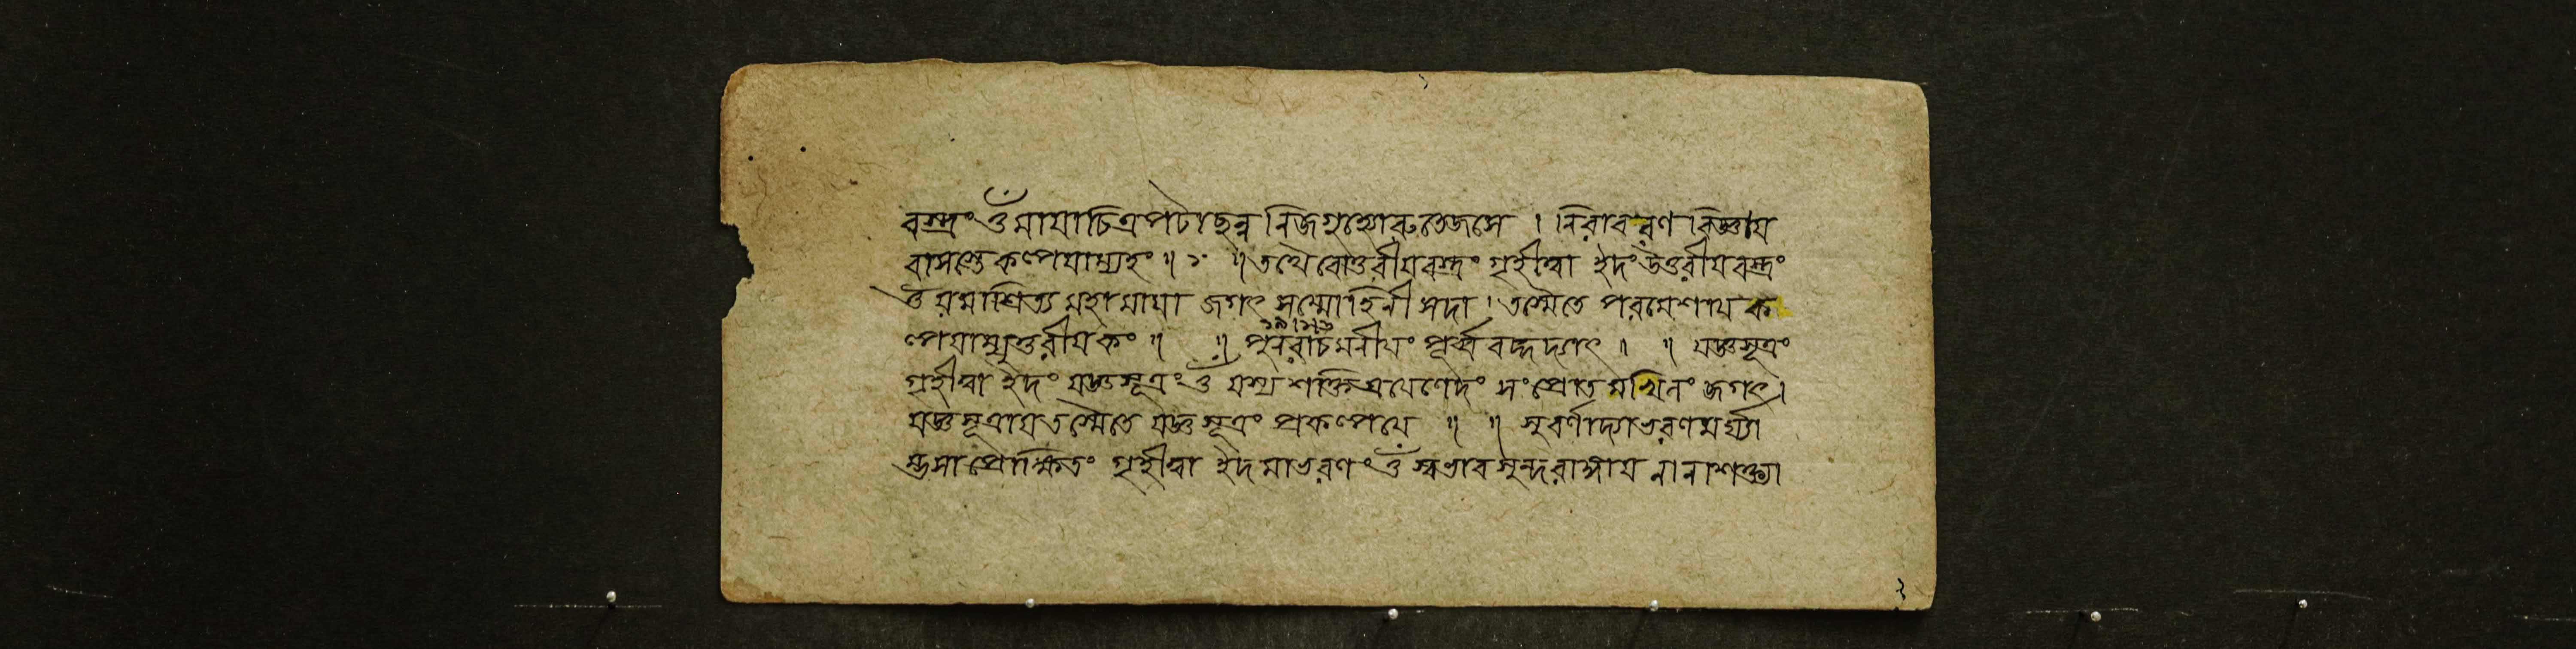 বস্ত্রং ওঁ মায়াচিত্রপটাছন্ন নিজগুহ্যোরুতেজসে । নিরাবরণ বিজ্ঞায়
বাসস্তে কল্পয়াম্যহং ॥ ১ ॥ তথৈবোত্তরীয়বস্ত্রং গৃহীত্বা ইদং উত্তরীয়বস্ত্রং
ওঁ যমাশ্রিত্য মহামায়া জগৎ সম্মোহিনী সদা । তস্মৈতে পরমেশায় ক
ল্পয়াম্যুত্তরীয়কং ॥ ॥ পুনরাচমনীয়ং পূর্ব্ববদ্দদ্যাৎ ॥ ॥ যজ্ঞসূত্রং
গৃহীত্বা ইদং যজ্ঞসূত্রং ওঁ যস্য শক্তিত্রয়েণেদং সংপ্রোতমখিলং জগৎ ।
যজ্ঞসূত্রায় তস্মৈতে যজ্ঞসূত্রং প্রকল্পয়ে ॥ ॥ সুবর্ণাদ্যাভরণমর্ঘ্যা
ম্ভসা প্রোক্ষিতং গৃহীত্বা ইদমাভরণং ওঁ স্বভাবসুন্দরাঙ্গায় নানাশক্ত্যা
২